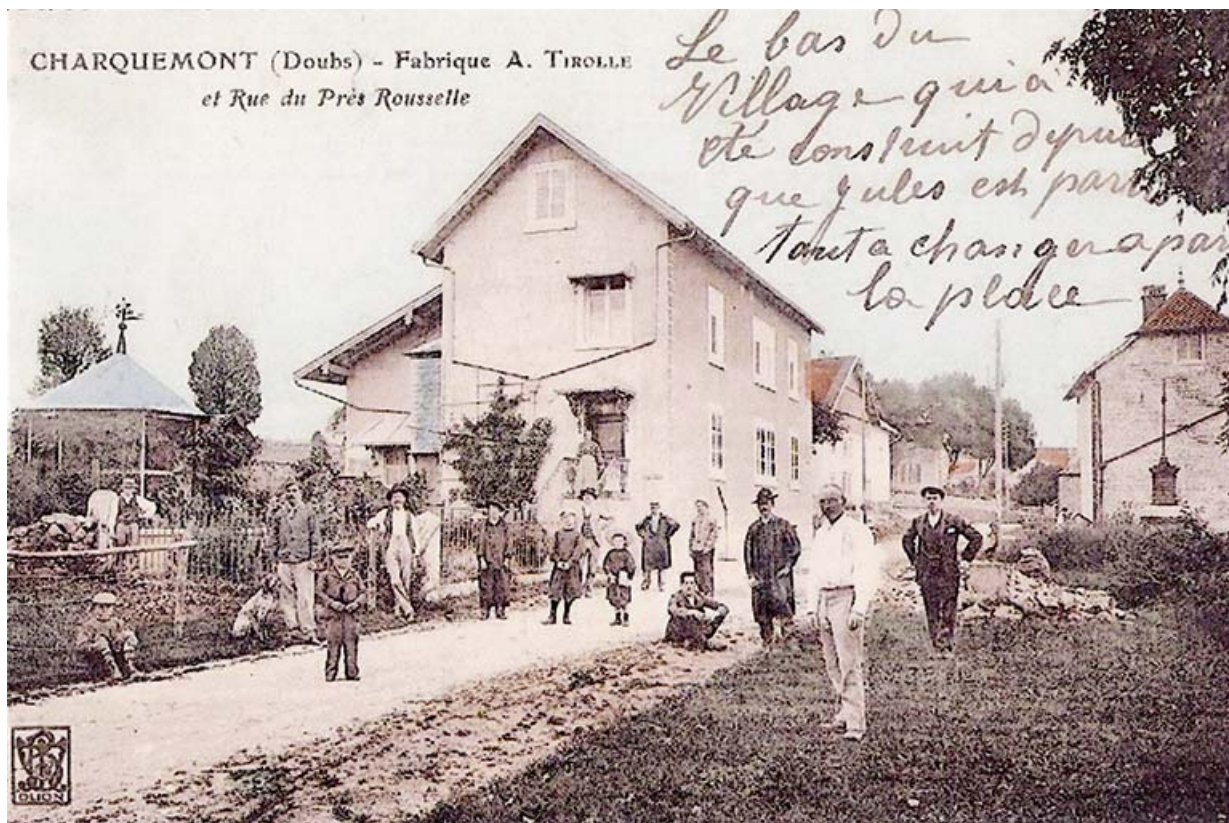 CHARQUEMONT (Doubs) - Fabrique A. TIROLLE
et Rue du Près Rousselle
Le bas du
Village qui a
été construit depuis
que Jules est parti
tout a changer a part
la place
DIJON